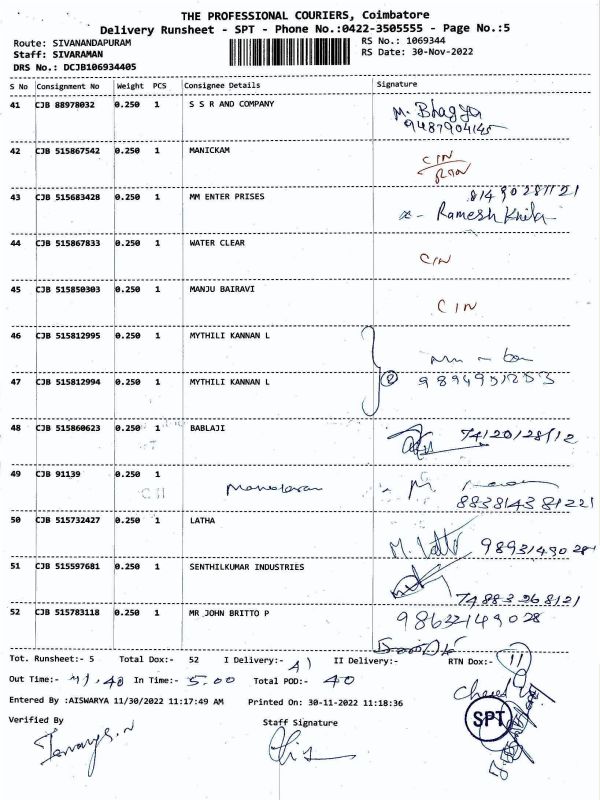 THE PROFESSIONAL COURIERS, Coimbatore
Delivery Runsheet - SPT - Phone No.:0422-3505555 - Page No.:5
Route: SIVANANDAPURAM
Staff: SIVARAMAN
DRS No.: DCJB106934405
RS No.: 1069344
RS Date: 30-Nov-2022
S No Consignment No Weight PCS Consignee Details Signature
41 CJB 88978032 0.250 1 S S R AND COMPANY M. Bhagya
9487904145
42 CJB 515867542 0.250 1 MANICKAM CIN
43 CJB 515683428 0.250 1 MM ENTER PRISES
Ramesh
44 CJB 515867833 0.250 1 WATER CLEAR CIN
45 CJB 515850303 0.250 1 MANJU BAIRAVI CIN
46 CJB 515812995 0.250 1 MYTHILI KANNAN L
47 CJB 515812994 0.250 1 MYTHILI KANNAN L
48 CJB 515860623 0.250 1 BABLAJI 74120128112
49 CJB 91139 0.250 1
50 CJB 515732427 0.250 1 LATHA M. Latha
51 CJB 515597681 0.250 1 SENTHILKUMAR INDUSTRIES
52 CJB 515783118 0.250 1 MR JOHN BRITTO P
Tot. Runsheet:- 5 Total Dox:- 52 I Delivery:- 41 II Delivery:- RTN Dox:- 11
Out Time:- 11.40 In Time:- 5.00 Total POD:- 40
Entered By :AISWARYA 11/30/2022 11:17:49 AM Printed On: 30-11-2022 11:18:36
Verified By Staff Signature
SPT